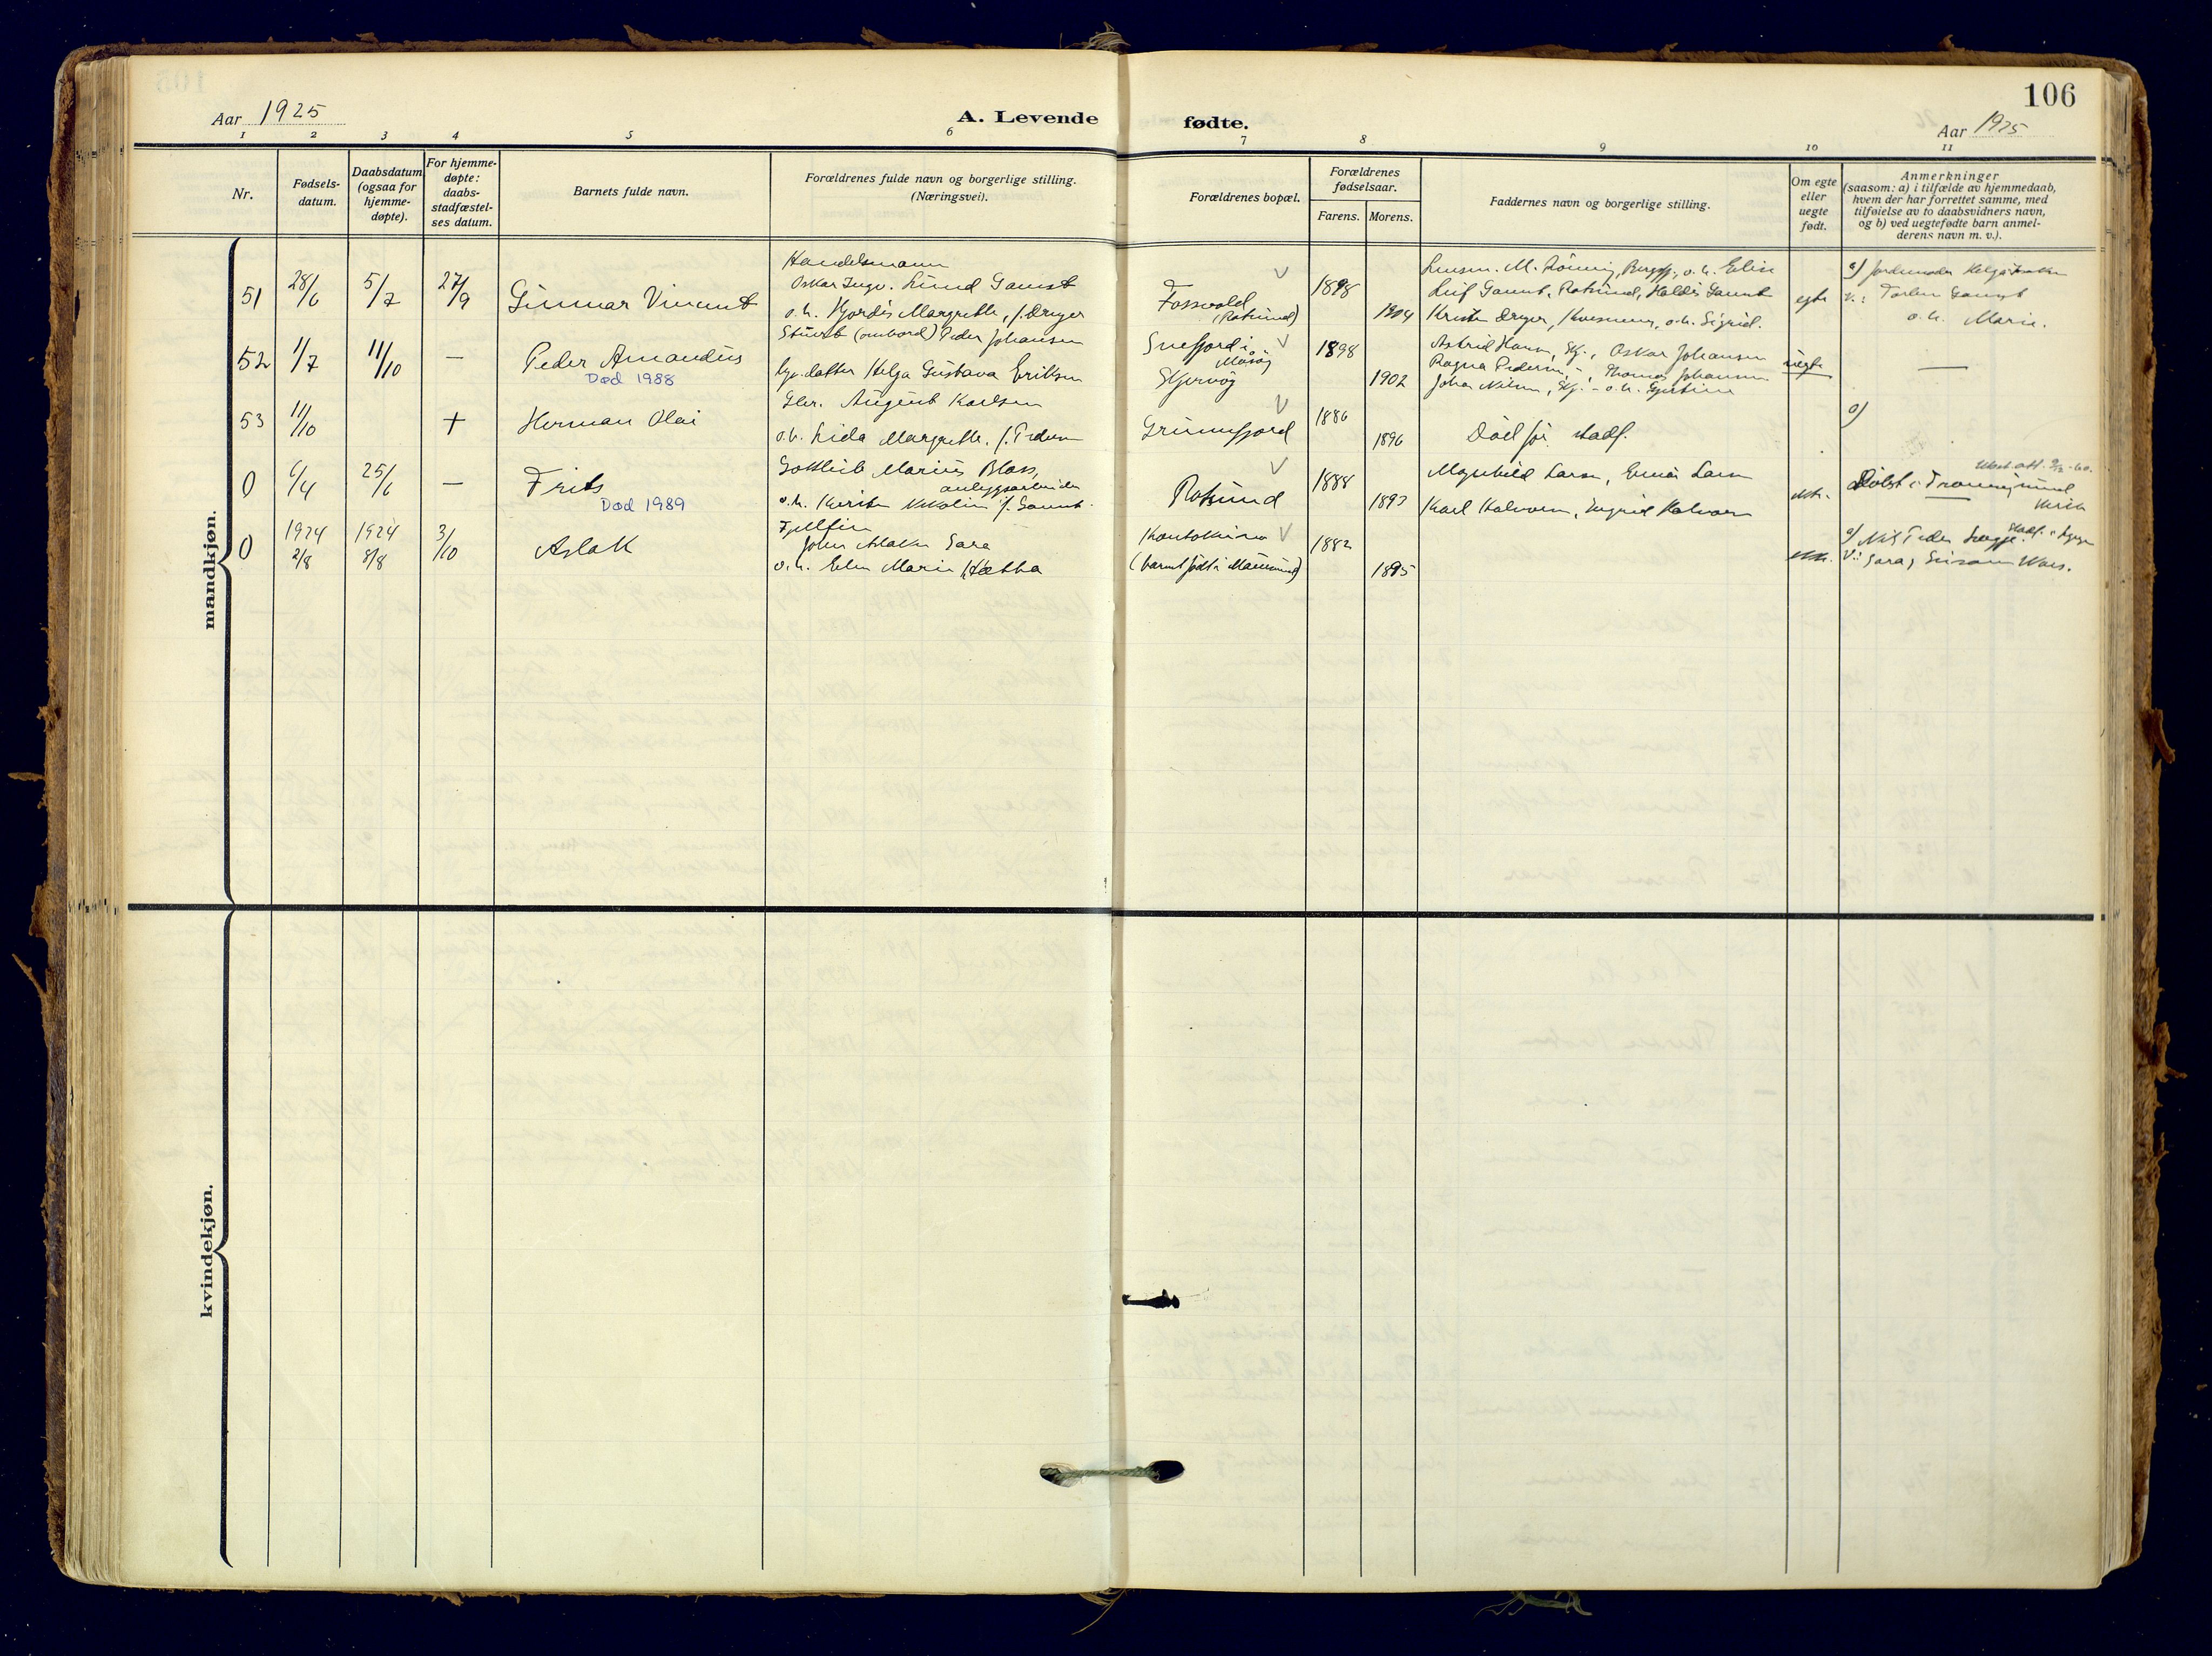 106
Aar 1925
A. Levende fødte.
Aar 1925
1 2 3 4 5 6 7 8 9 10 11
Nr.
Fødsels-
datum.
Daabsdatum
(ogsaa for
hjemme-
døpte).
For hjemme-
døpte:
daabs-
stadfæstel-
ses datum.
Barnets fulde navn.
Forældrenes fulde navn og borgerlige stilling.
(Næringsvei).
Forældrenes bopæl.
Forældrenes
fødselsaar.
Farens. Morens.
Faddernes navn og borgerlige stilling.
Om egte
eller
uegte
født.
Anmerkninger
(saasom: a) i tilfælde av hjemmedaab,
hvem der har forrettet samme, med
tilføielse av to daabsvidners navn,
og b) ved uegtefødte barn anmel-
derens navn m. v.).
mandkjøn.
51 28/6 5/7 27/9 Gunnar Vincent
Handelsmann
Oskar Ingv. Lund Gamst
o.h. Hjørdis Margrethe, f. Dreyer
Fossvold
(Rotsund)
1898
1904
Lensm. M. Rønning, o.h. Elise
Leif Gamst, Rotsund, Haldis Gamst
Dreyer, o.h. Sigrid.
egte
a) Jordmoder Helga
V.: Gamst
o.h. Marie.
52 1/7 11/10 — Peder Amandus
Død 1988
Stuert (ombord) Peder Johansen
datter Helga Gustava Eriksen
Snefjord i
Måsøy
Skjervøy
1898
1902
Astrid Hansen, Skj., Oskar Johansen
Ragna Pedersen, - Thomas Johansen
Johan Nilsen, Skj. - o.h.
uegte
—
53 11/10 + Herman Olai
Gbr. August Karlsen
o.h. Lida Margrethe, f. Pedersen
Grunnfjord
1886
1896
Død før stadf.
a)
0 6/4 25/6 — Frits
Død 1989
Gottlieb Marius Blass,
anlægsarbeider
o.h. Nikoline f. Gamst.
Rotsund
1888
1893
Magnhild Larsen, Einar Larsen
Karl Halvorsen, Ingrid Halvorsen
ekte.
Døbt i Tromsøysund
Kirke
0 1924 2/8 1924 8/8 3/10 Aslak
Fjellfin
John Aslaksen Sara
o.h. Elen Marie Hætta
Kautokeino
(barnet født i Maursund)
1882
1895
ekte.
a) Nils Peder
V.: Sara,
kvindekjøn.